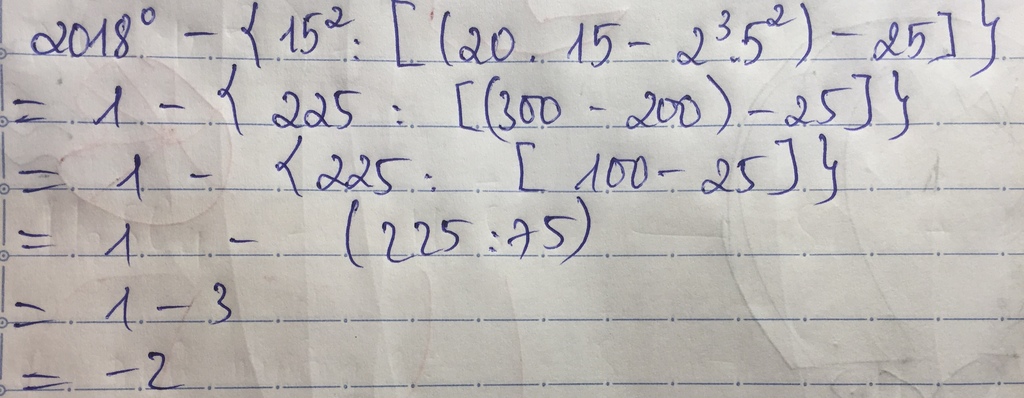 2018⁰ - { 15² : [ (20 . 15 - 2³.5²) - 25 ] }
= 1 - { 225 : [(300 - 200) - 25] }
= 1 - { 225 : [ 100 - 25 ] }
= 1 - (225 : 75)
= 1 - 3
= -2